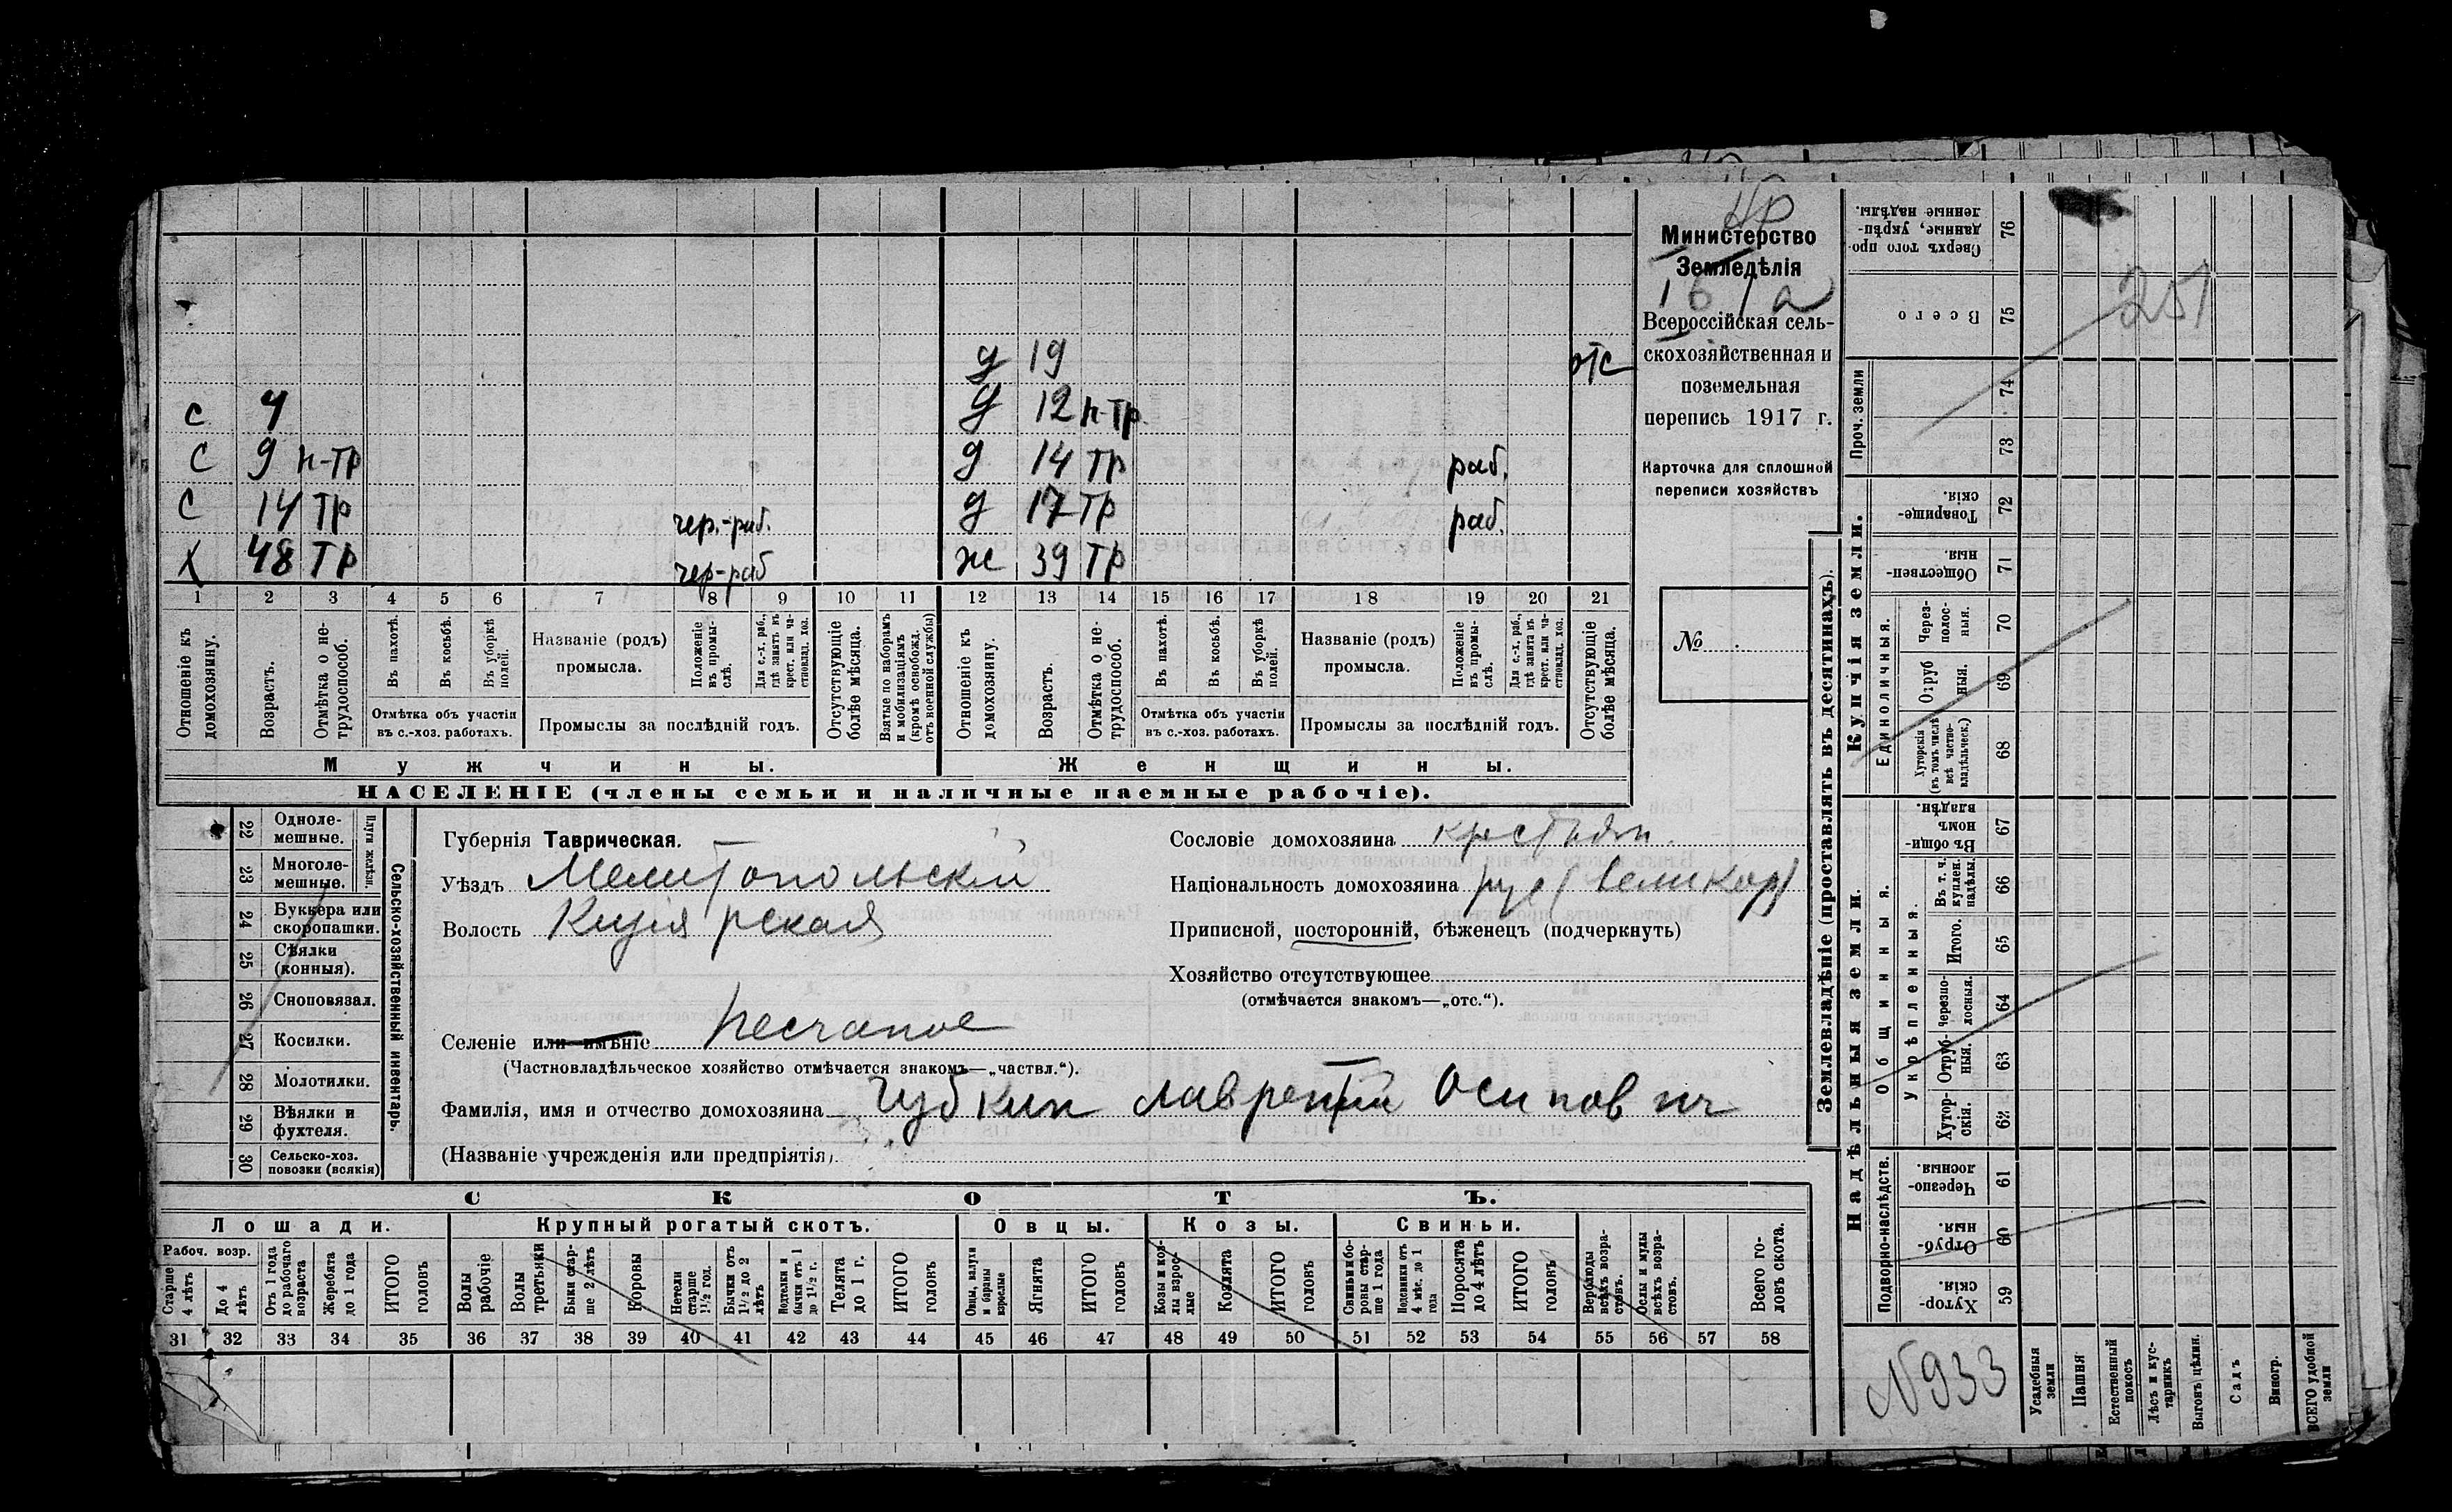 Министерство
Земледѣлія
1 6 1 а
Всероссійская сель-
скохозяйственная и
поземельная
перепись 1917 г.
Карточка для сплошной
переписи хозяйствъ
№
д 19 отс
с 4 д 12 н-тр
с 9 н-тр д 14 тр раб.
с 14 тр чер.-раб. д 17 тр раб.
х 48 тр чер-раб ж 39 тр
1 2 3 4 5 6 7 8 9 10 11 12 13 14 15 16 17 18 19 20 21
Отношеніе къ домохозяину.
Возрастъ.
Отмѣтка о не-трудоспособ.
Въ пахотѣ.
Въ косьбѣ.
Въ уборкѣ полей.
Отмѣтка объ участіи
въ с.-хоз. работахъ.
Названіе (родъ)
промысла.
Положеніе въ промы-слѣ.
Для с.-х. раб., гдѣ занятъ въ крест. или ча-стновлад. хоз.
Промыслы за послѣдній годъ.
Отсутствующіе болѣе мѣсяца.
Взятые по наборамъ и мобилизаціямъ (кромѣ освобожд. отъ военной службы)
Отношеніе къ домохозяину.
Возрастъ.
Отмѣтка о не-трудоспособ.
Въ пахотѣ.
Въ косьбѣ.
Въ уборкѣ полей.
Отмѣтка объ участіи
въ с.-хоз. работахъ.
Названіе (родъ)
промысла.
Положеніе въ промы-слѣ.
Для с.-х. раб., гдѣ занята въ крест. или ча-стновлад. хоз.
Промыслы за послѣдній годъ.
Отсутствующіе болѣе мѣсяца.
Мужчины. Женщины.
НАСЕЛЕНІЕ (члены семьи и наличные наемные рабочіе).
Сельско-хозяйственный инвентарь.
Плуги желѣзн.
22 Одноле-мешные.
23 Многоле-мешные.
24 Буккера или скоропашки.
25 Сѣялки (конныя).
26 Сноповязал.
27 Косилки.
28 Молотилки.
29 Вѣялки и фухтеля.
30 Сельско-хоз. повозки (всякія)
Губернія Таврическая.
Уѣздъ Мелитопольскій
Волость Кизіярская
Селеніе или имѣніе Песчаное
(Частновладѣльческое хозяйство отмѣчается знакомъ—„частвл.“).
Фамилія, имя и отчество домохозяина Чубкин Лаврентій Осипович
(Названіе учрежденія или предпріятія)
Сословіе домохозяина крестьян.
Національность домохозяина рус (великор)
Приписной, посторонній, бѣженецъ (подчеркнуть)
Хозяйство отсутствующее
(отмѣчается знакомъ—„отс.“).
СКОТЪ.
Лошади. Крупный рогатый скотъ. Овцы. Козы. Свиньи.
Рабоч. возр.
Старше 4 лѣтъ
До 4 лѣтъ
Отъ 1 года до рабочаго возраста
Жеребята до 1 года
ИТОГО головъ
Волы рабочіе
Волы третьяки
Быки стар-ше 2 лѣтъ
Коровы
Нетели старше 1½ год.
Бычки отъ 1½ до 2 лѣтъ
Подтелки и бычки отъ 1 до 1½ г.
Телята до 1 г.
ИТОГО головъ
Овцы, валухи и бараны взрослые
Ягнята
ИТОГО головъ
Козы и коз-лы взрос-лые
Козлята
ИТОГО головъ
Свиньи и бо-ровы стар-ше 1 года
Подсвинки отъ 4 мѣс. до 1 года
Поросята до 4 лѣтъ
ИТОГО головъ
Верблюды всѣхъ возра-стовъ.
Ослы и мулы всѣхъ возра-стовъ.
Всего го-ловъ скота.
31 32 33 34 35 36 37 38 39 40 41 42 43 44 45 46 47 48 49 50 51 52 53 54 55 56 57 58
Землевладѣніе (проставлять въ десятинахъ).
Сверхъ того про-данные, укрѣп-ленные надѣлы. 76
251
Всего 75
Проч. земли
74
73
Купчія земли.
Товарище-скія. 72
Обществен-ныя. 71
Единоличныя.
Через-полос-ныя. 70
Отруб ныя. 69
Хуторскія (въ томъ числѣ всѣ частно-владѣльческ.) 68
Надѣльныя земли.
Общинныя.
Въ общи-номъ владѣн. 67
Укрѣпленныя.
Въ т. ч. куплен. надѣлы. 66
Итого. 65
Черезпо-лосныя. 64
Отруб-ныя. 63
Хутор-скія. 62
Подворно-наслѣдств.
Черезпо-лосныя. 61
Отруб-ныя. 60
Хутор-скія. 59
N 933
Усадебныя земли
Пашня
Естественный покосъ
Лѣсъ и кус-тарникъ
Выгонъ цѣлин.
Садъ
Виногр.
ВСЕГО удобной земли